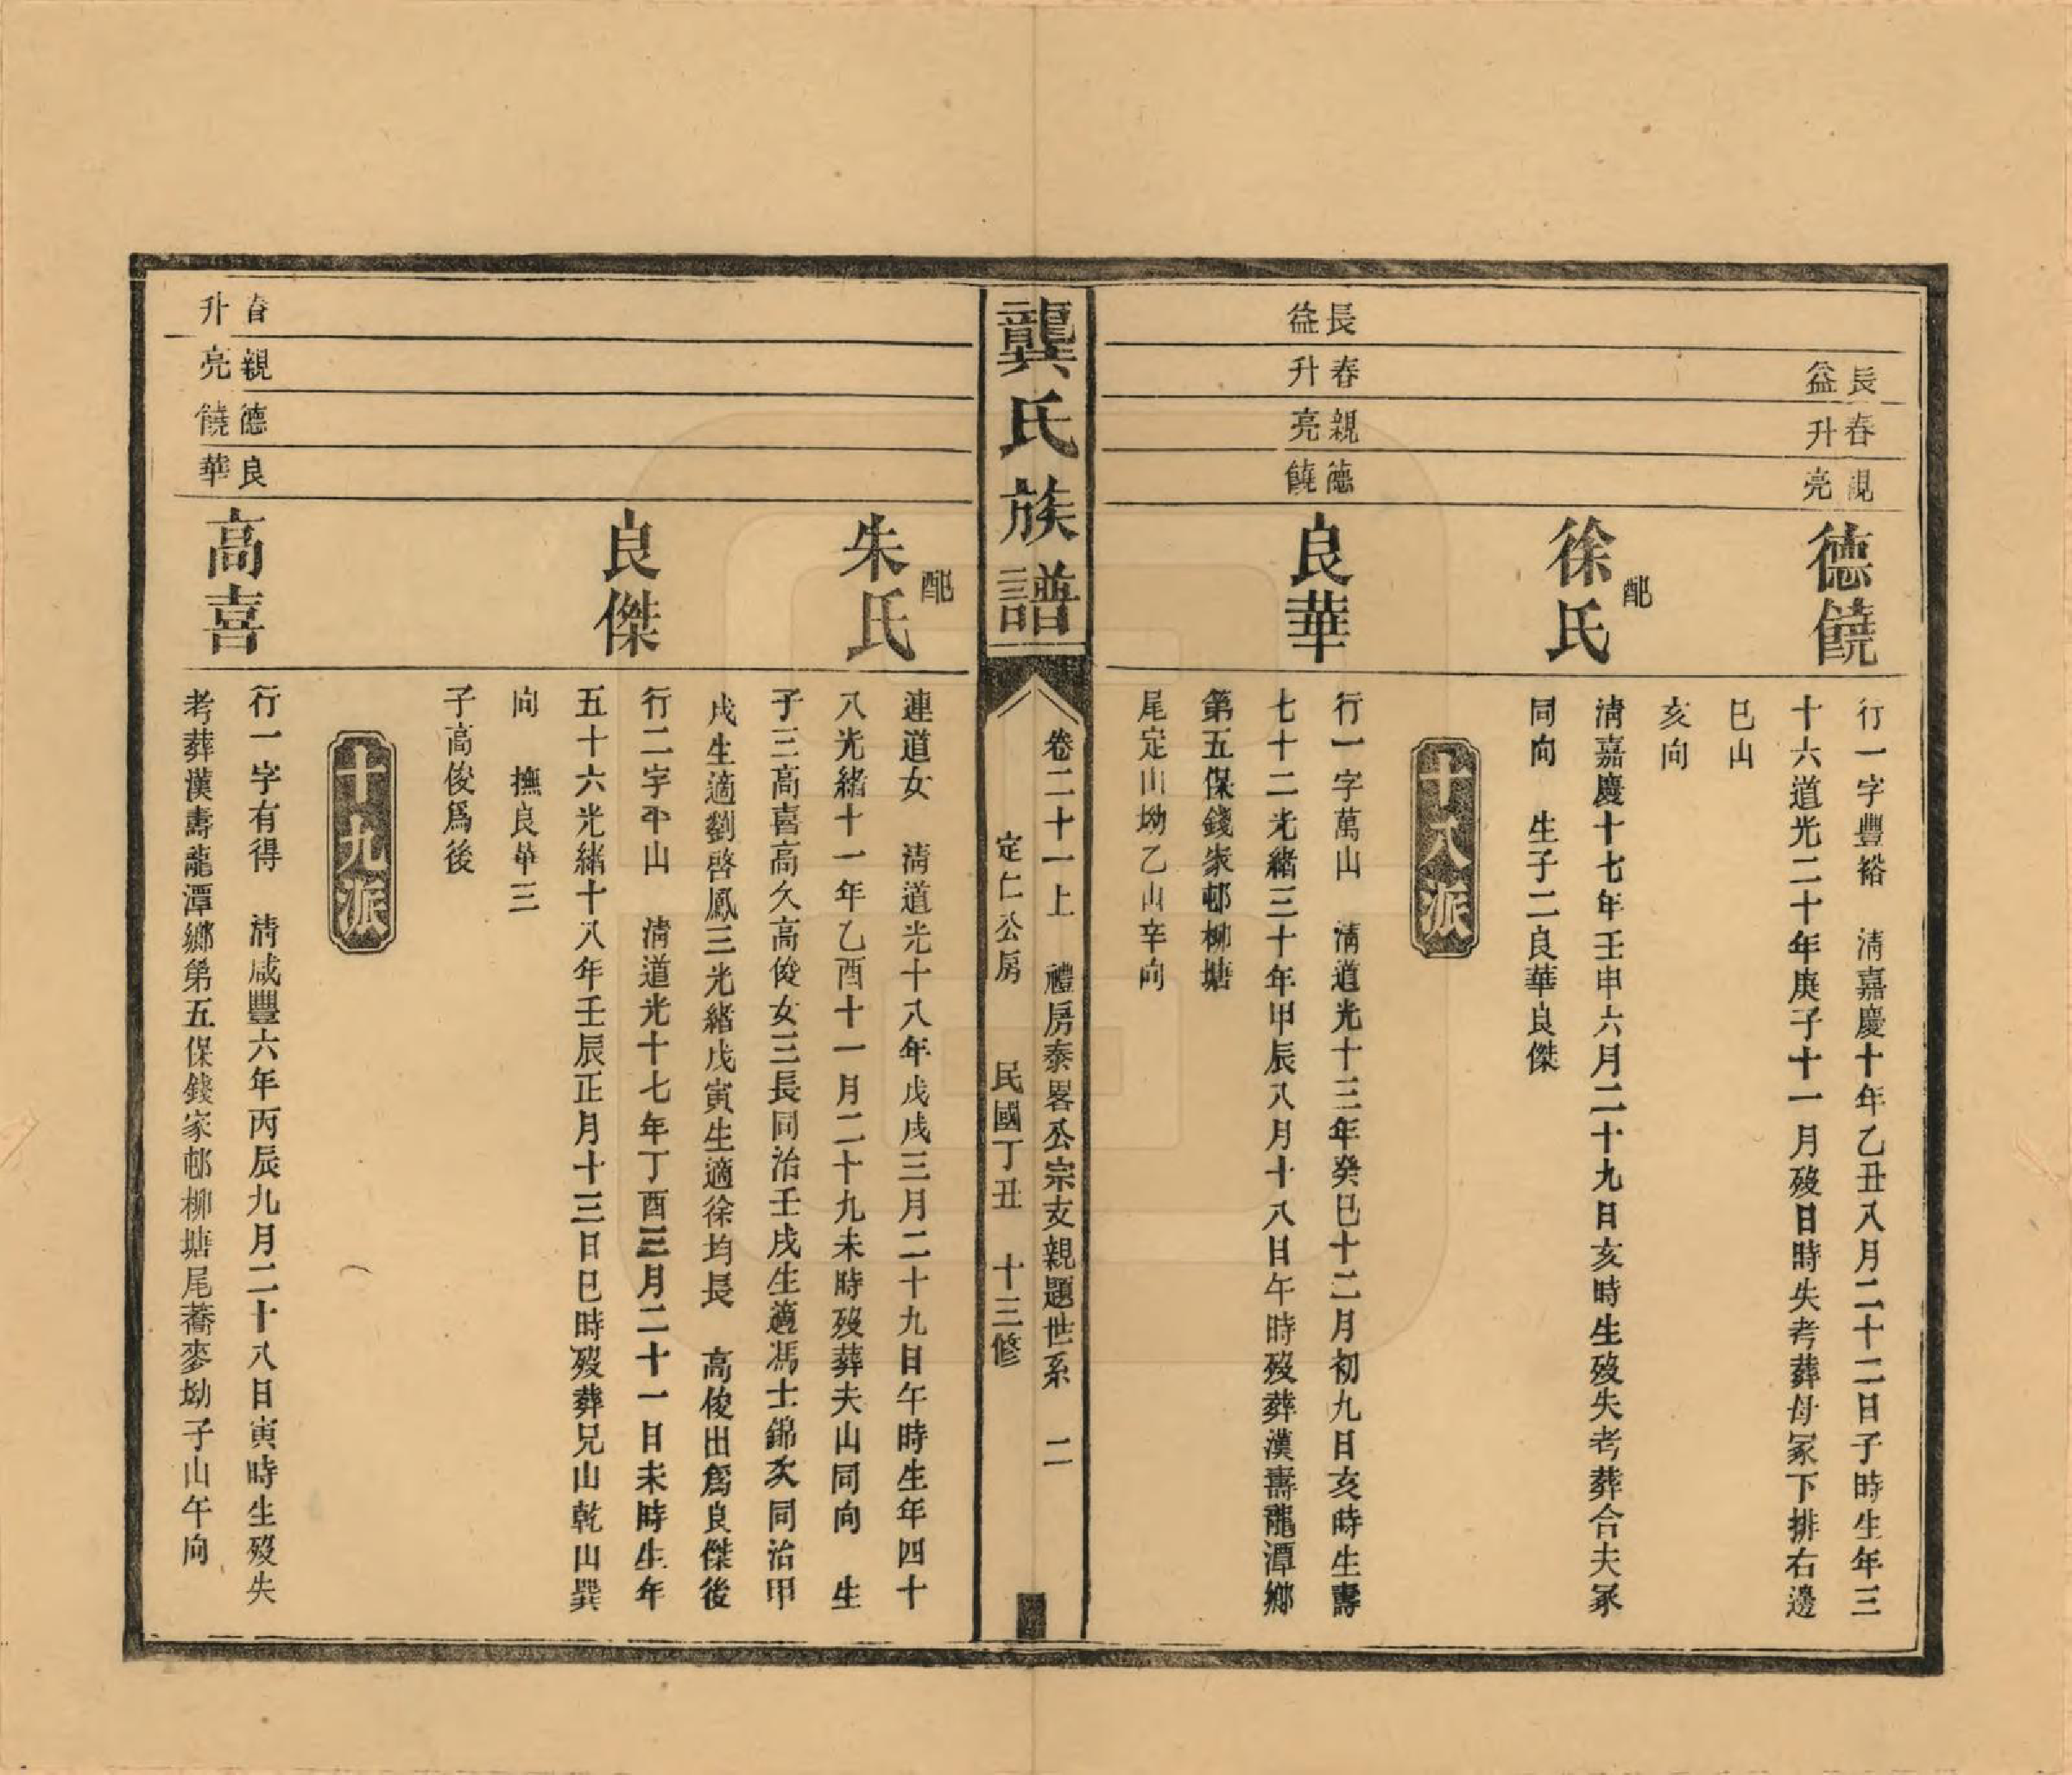 長益
春升
親亮
德饒
行一字豐裕　清嘉慶十年乙丑八月二十二日子時生年三
十六道光二十年庚子十一月歿日時失考葬母冢下排右邊
巳山
亥向
配
徐氏
清嘉慶十七年壬申六月二十九日亥時生歿失考葬合夫冢
同向　生子二良華良傑
十八派
長益
春升
親亮
德饒
良華
行一字萬山　清道光十三年癸巳十二月初九日亥時生壽
七十二光緒三十年甲辰八月十八日午時歿葬漢壽龍潭鄉
第五保錢家邨柳塘
尾定山坳乙山辛向
龔氏族譜
卷二十一上　禮房泰畧公宗支親題世系　二
定仁公房　民國丁丑　十三修
配
朱氏
連道女　清道光十八年戊戌三月二十九日午時生年四十
八光緒十一年乙酉十一月二十九未時歿葬夫山同向　生
子三高喜高久高俊女三長同治壬戌生適馮士錦次同治甲
戌生適劉啓鳳三光緒戊寅生適徐均長　高俊出爲良傑後
良傑
行二字平山　清道光十七年丁酉三月二十一日未時生年
五十六光緒十八年壬辰正月十三日巳時歿葬兄山乾山巽
向　撫良華三
子高俊爲後
十九派
春升
親亮
德饒
良華
高喜
行一字有得　清咸豐六年丙辰九月二十八日寅時生歿失
考葬漢壽龍潭鄉第五保錢家邨柳塘尾蕎麥坳子山午向